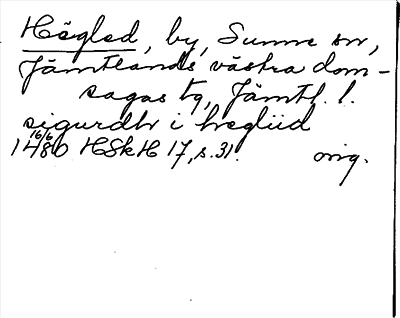 Högled, by, Sunne sn,
Jämtlands västra dom-
sagas tg, Jämtl. l.
sigurdhr i hregliid
16/6
1480 HSkH 17, s. 31. orig.